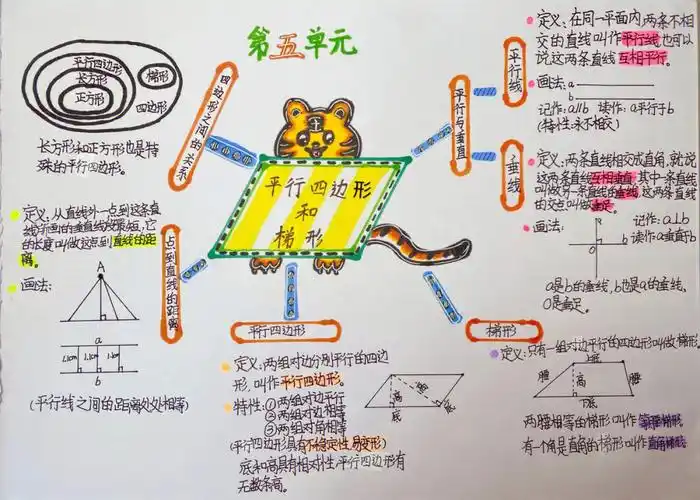 第五单元
平行四边形
和
梯形
四边形之间的关系
平行四边形
长方形
正方形
梯形
四边形
长方形和正方形也是特
殊的平行四边形。
平行与垂直
平行线
定义:在同一平面内,两条不相
交的直线叫作平行线,也可以
说这两条直线互相平行。
画法:a
b
记作:a∥b 读作:a平行于b
(特性:永不相交)
垂线
定义:两条直线相交成直角,就说
这两条直线互相垂直,其中一条直线
叫做另一条直线的垂线,这两条直线
的交点叫做垂足。
画法:
a
b
O
记作:a⊥b
读作:a垂直于b
a是b的垂线,b也是a的垂线,
O是垂足。
点到直线的距离
定义:从直线外一点到这条直
线所画的垂直线段最短,它
的长度叫做这点到直线的距
离。
画法:
A
a
1.1cm 1.1cm 1.1cm
b
(平行线之间的距离处处相等)
平行四边形
定义:两组对边分别平行的四边
形,叫作平行四边形。
特性:①两组对边平行
②两组对边相等
③两组对角相等
(平行四边形具有不稳定性,易变形)
底和高具有相对性,平行四边形有
无数条高。
高
底
高
底
梯形
定义:只有一组对边平行的四边形叫做梯形。
上底
腰
高
腰
下底
两腰相等的梯形叫作等腰梯形
有一个角是直角的梯形叫作直角梯形